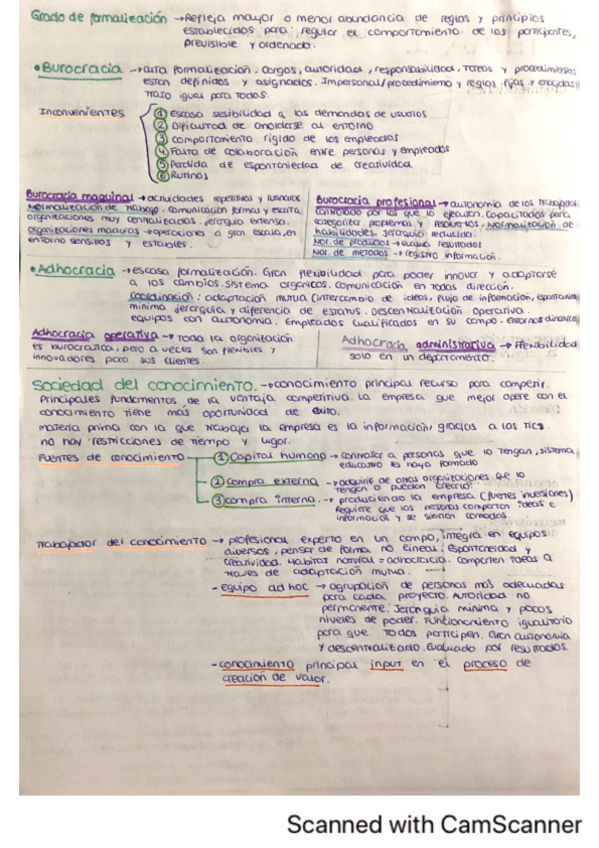 Grado de formalización → Refleja mayor o menor abundancia de reglas y principios
establecidos para regular el comportamiento de los participantes,
previsible y ordenado.
• Burocracia → alta formalización. Cargos, autoridad, responsabilidad, tareas y procedimientos
estan definidos y asignados. Impersonal/procedimiento y reglas fijas y
trato igual para todos.
Inconvenientes
① Escasa sesibilidad a las demandas de usuarios
② Dificultad de amoldarse al entorno
③ comportamiento rigido de los empleados
④ Falta de colaboración entre personas y empleados
⑤ Perdida de espontaneidad de creatividad
⑥ Rutinas
Burocracia maquinal → actividades repetitivas y rutinarias
Normalización de trabajo. comunicación formal y escrita
organizaciones muy centralizadas. jerarquia extensa.
organizaciones maduras → operaciones a gran escala, en
entorno sensillos y estables.
Burocracia profesional → autonomia de los trabajadores
controlado por los que lo ejecutan. capacitados para
problemas y resolverlos. Normalización de
habilidades. jerarquia reducida.
Nor. de productos → evalua resultados
Nor. de metodos → registro información.
• Adhocracia → escasa formalización. Gran flexibilidad para poder innovar y adaptarse
a los cambios. sistema organicos. comunicación en todas dirección.
Coordinación: adaptación mutua (intercambio de ideas, flujo de información,
minima jerarquia y diferencia de estatus. Descentralización operativa.
equipos con autonomia. Empleados cualificados en su campo. entornos dinamicos
Adhocracia operativa → Toda la organización
es burocratica, pero a veces son flexibles y
innovadores para sus clientes.
Adhocracia administrativa → flexibilidad
solo en un departamento.
Sociedad del conocimiento. → conocimiento principal recurso para competir.
Principales fundamentos de la ventaja competitiva. La empresa que mejor opere con el
conocimiento tiene más oportunidad de exito.
materia prima con la que trabaja la empresa es la información, gracias a las tics.
no hay restricciones de tiempo y lugar.
Fuentes de conocimiento
① Capital humano → contratar a personas que lo tengan, sistema
educativo les haya formado
② compra externa → adquirir de otras organizaciones que lo
tengan o puedan crearlo.
③ compra interna. → produciendo la empresa (fuertes inversiones)
Requiere que las personas comparten ideas e
información y se sientan comodas.
Trabajador del conocimiento → profesional experto en un campo, integra en equipos
diversos, pensar de forma no lineal. Espontaneidad y
creatividad. Habitat natural = adhocracia. comparten ideas a
traves de adaptación mutua.
- equipo ad hoc → agrupación de personas más adecuadas
para cada proyecto. Autoridad no
permanente. Jerarquia minima y pocos
niveles de poder. Funcionamiento igualitario
para que todos participen. Gran autonomia
y descentralizado. evaluado por resultados.
- conocimiento principal input en el proceso de
creación de valor.
Scanned with CamScanner